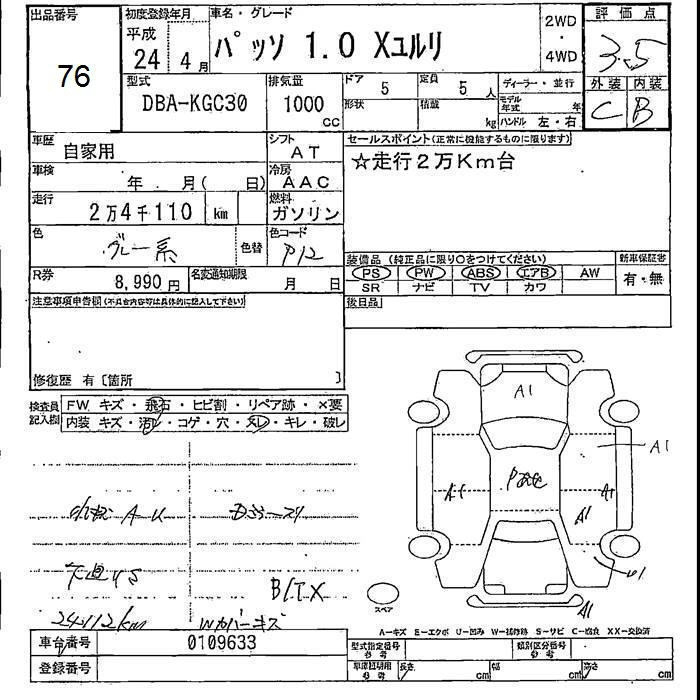 出品番号
76
初度登録年月
平成
24 4 月
車名・グレード
パッソ 1.0 Xユルリ
2WD
・
4WD
評価点
3.5
外装 内装
C B
型式
DBA-KGC30
排気量
1000
cc
ドア 5
形状
定員 5 人
積載 kg
ディーラー・並行
モデル年式 年
ハンドル 左・右
車歴
自家用
シフト
AT
車検
年 月( 日)
冷房
AAC
走行
2万4千110 km
燃料
ガソリン
色
グレー系
色替
色コード
P12
R券
8,990円
名変通知期限
月 日
セールスポイント(正常に機能するものに限ります)
☆走行2万Km台
装備品(純正品に限り○をつけてください)
PS PW ABS エアB AW
SR ナビ TV カワ
新車保証書
有・無
後日品
注意事項申告欄(不具合内容等は具体的に記入して下さい)
修復歴 有〔箇所 〕
検査員
記入欄
FW キズ・飛石・ヒビ割・リペア跡・×要
内装 キズ・汚レ・コゲ・穴・スレ・キレ・破レ
AU
下廻りS
B/TX
24112km
Wカバーキズ
A1
A1
A1
A1
A1
A1
スペア
A-キズ E-エクボ U-凹み W-補修跡 S-サビ C-腐食 XX-交換済
車台番号 0109633
登録番号
型式指定番号
参考
類別区分番号
参考
車庫証明用
参考
長さ cm
幅 cm
高さ cm